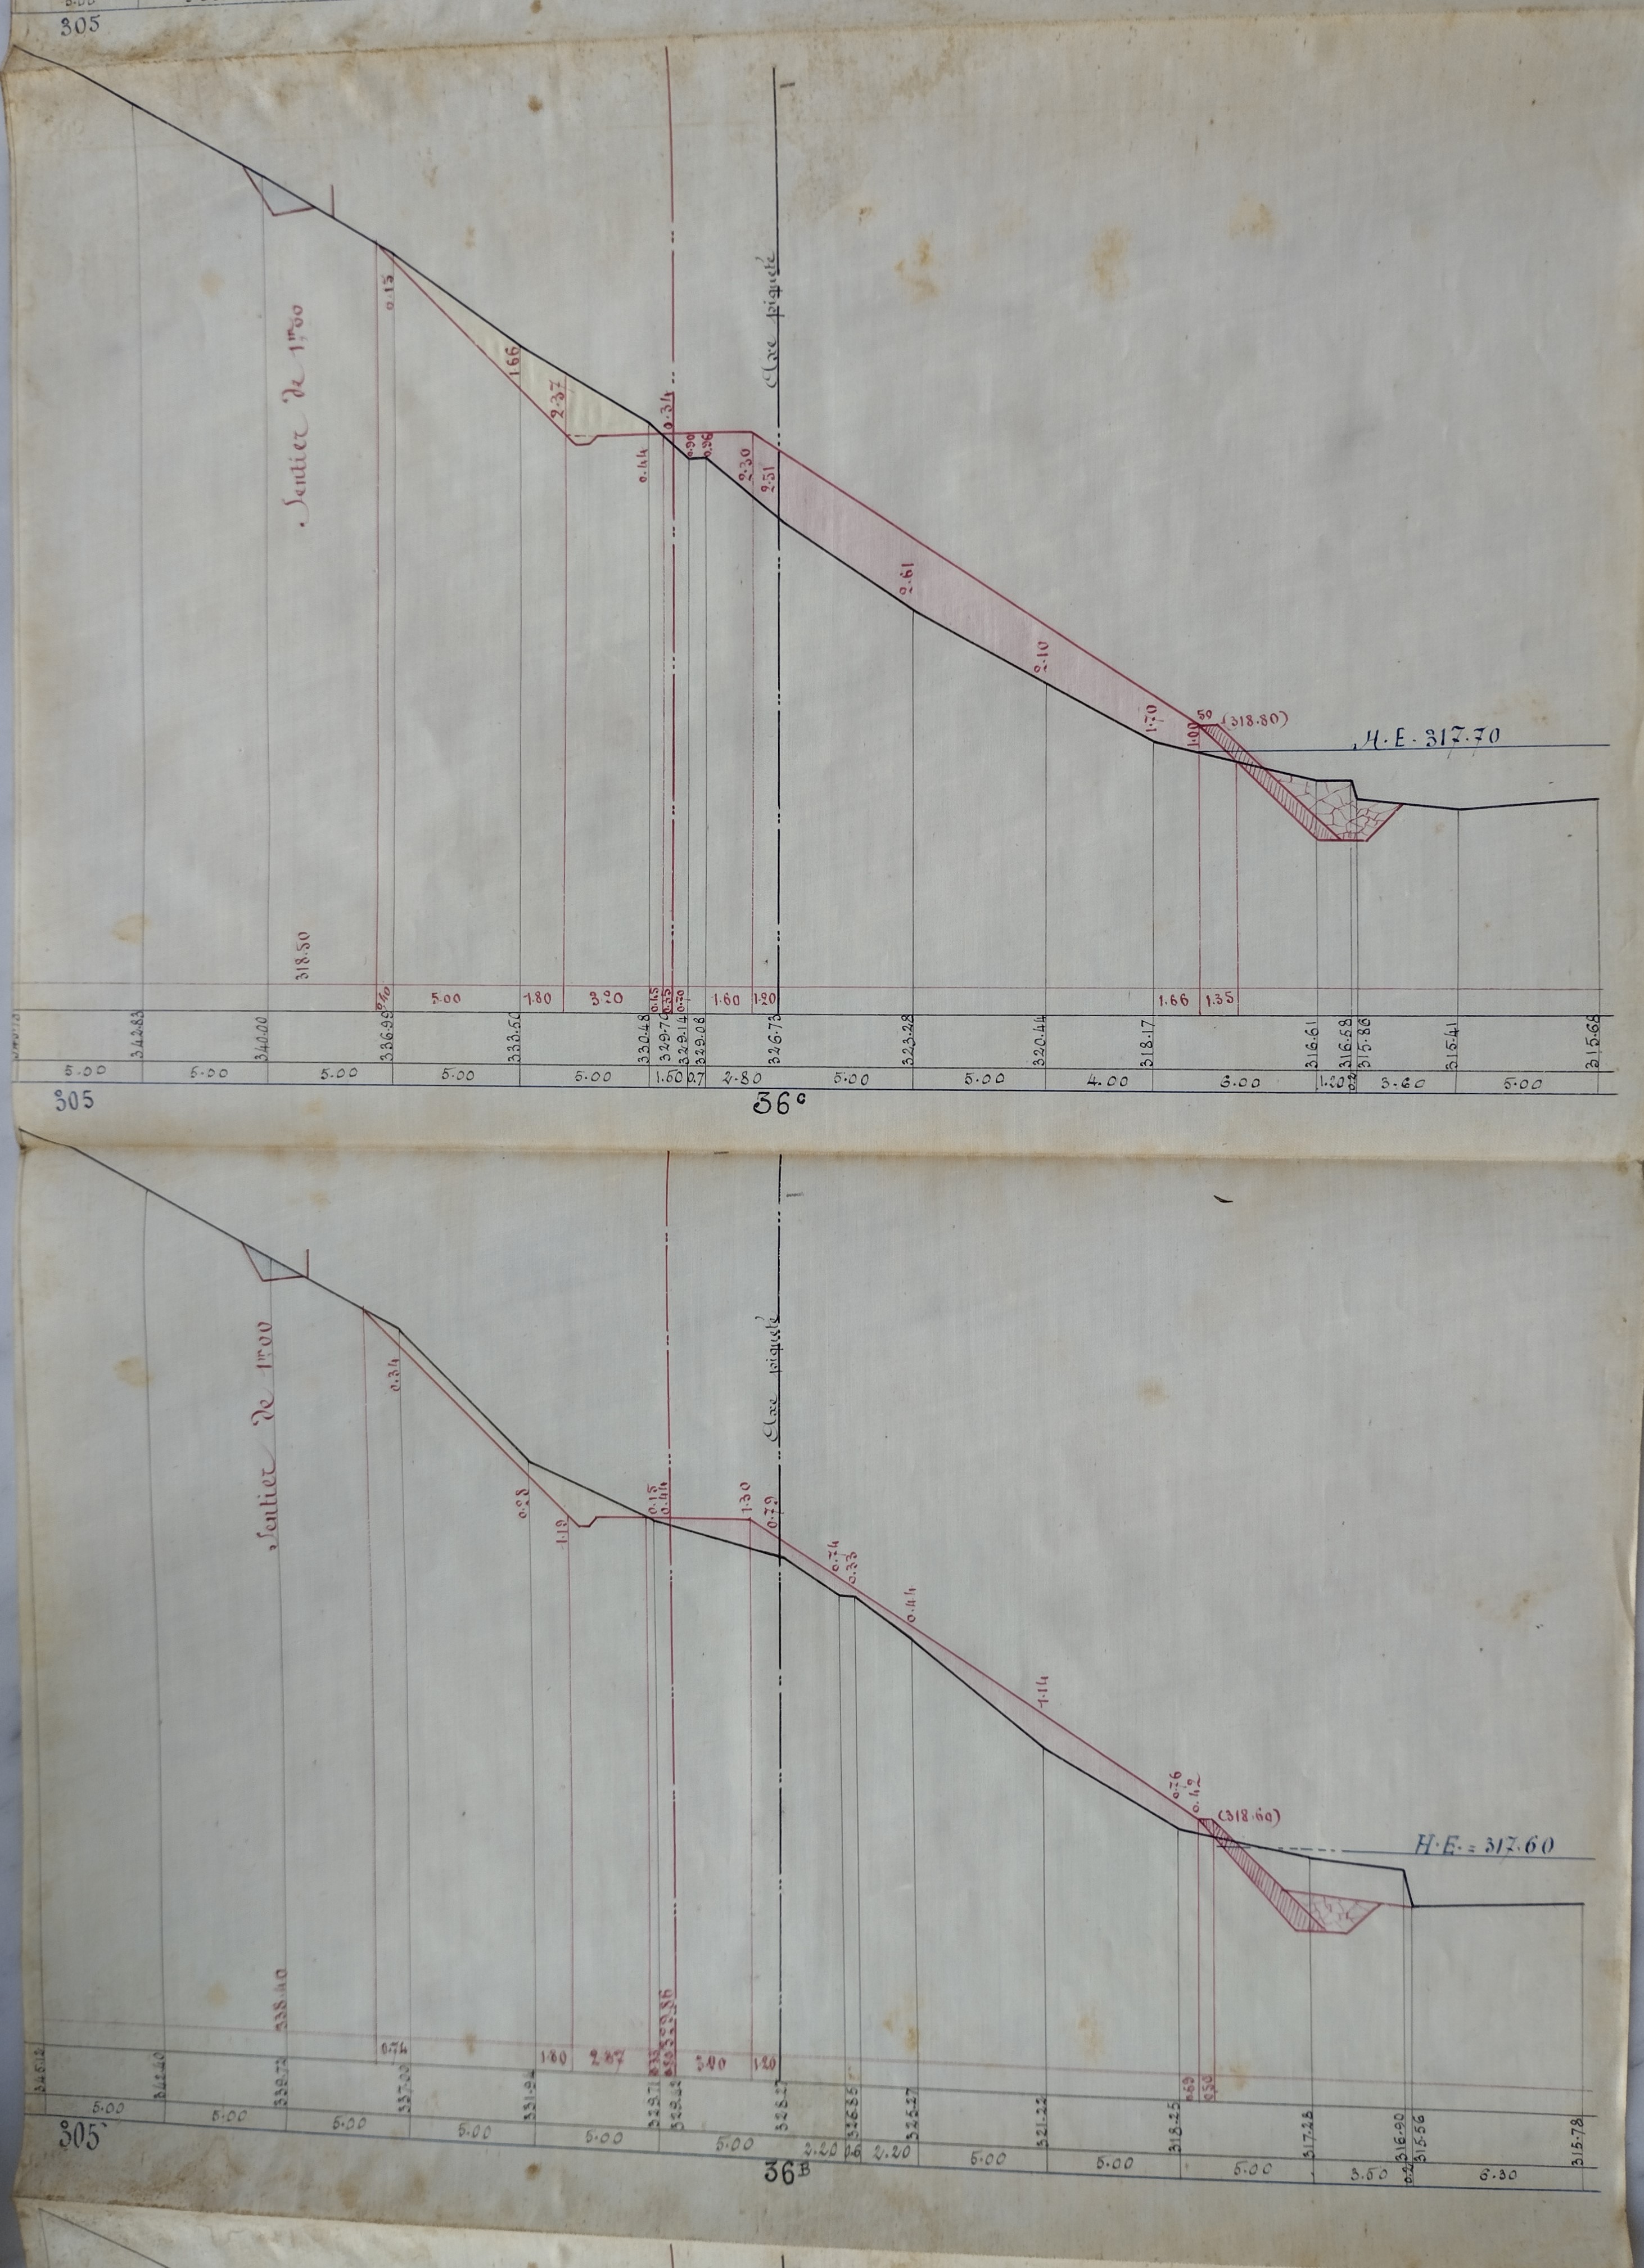 305
Sentier de 1m00
0.15
1.66
2.37
0.44
0.34
0.90
0.96
2.30
2.51
Axe piqueté
2.61
2.10
1.70
1.00
50
(318.80)
H.E. 317.70
318.50
5.00
1.80
3.20
0.45
0.35
0.70
1.60
1.20
1.66
1.35
342.83
340.00
336.99
333.50
330.48
329.70
329.14
329.08
326.73
323.28
320.44
318.17
316.61
316.58
315.86
315.41
315.68
5.00 5.00 5.00 5.00 5.00 1.50 0.7 2.80 5.00 5.00 4.00 6.00 1.20 0.2 3.60 5.00
305
36c
Sentier de 1m00
0.34
0.28
1.19
0.15
0.44
1.30
0.79
Axe piqueté
0.74
0.33
0.44
1.14
0.76
0.42
(318.60)
H.E. = 317.60
338.40
329.86
0.74
1.80
2.87
3.00
1.20
0.69
0.50
345.12
342.40
339.72
337.00
331.94
329.71
328.27
326.85
325.27
321.22
318.25
317.28
316.90
315.56
315.78
5.00 5.00 5.00 5.00 5.00 5.00 2.20 0.6 2.20 5.00 5.00 5.00 3.50 0.2 6.30
305
36B